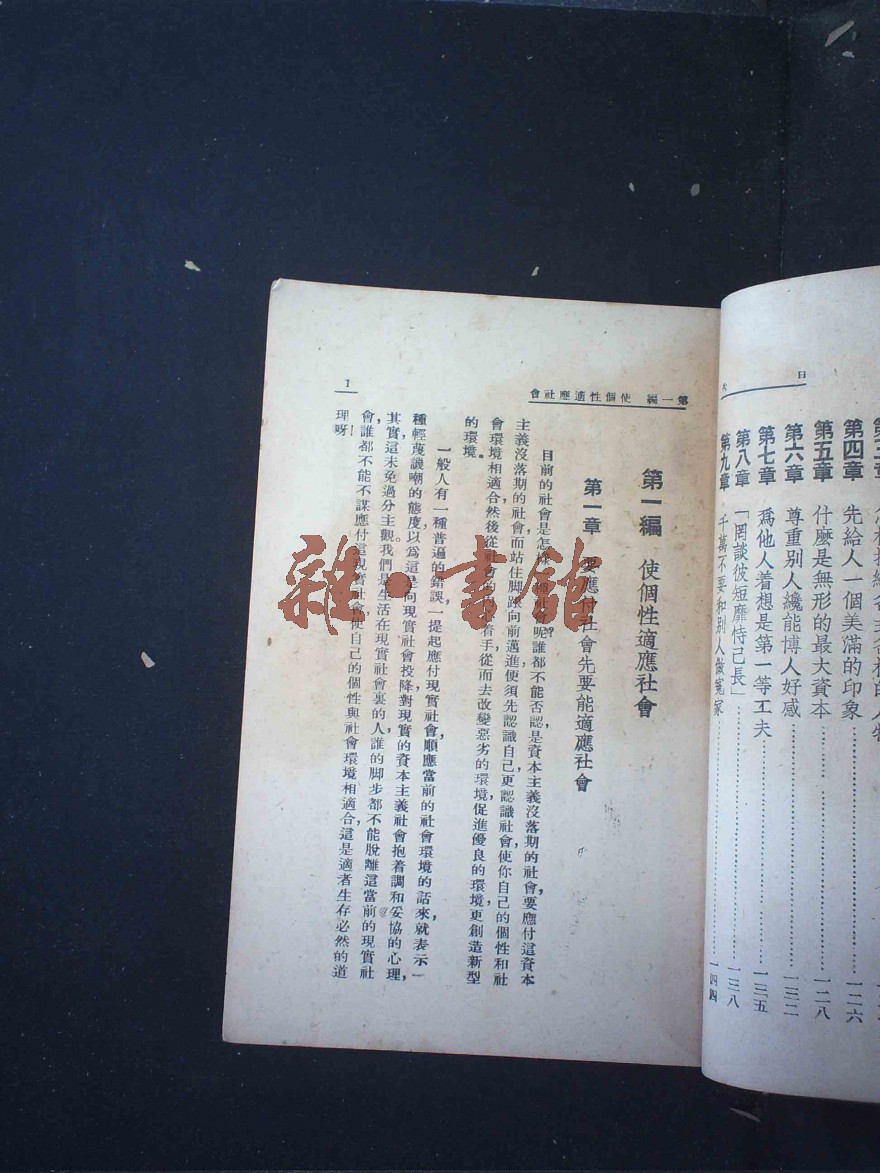 第四章 先給人一個美滿的印象……一二六
第五章 什麼是無形的最大資本……一二八
第六章 尊重别人纔能博人好感……一三二
第七章 爲他人着想是第一等工夫……一三五
第八章 「罔談彼短靡恃己長」……一三八
第九章 千萬不要和别人做寃家……一四四
第一編 使個性適應社會
1
第一編 使個性適應社會
第一章 要應付社會先要能適應社會
目前的社會是怎社會呢?誰都不能否認是資本主義沒落期的社會,要應付這資本
主義沒落期的社會而站住脚跟向前邁進便須先認識自己更認識社會,使你自己的個性和社
會環境相適合然後從社會的着手從而去改變惡劣的環境,促進優良的環境,更創造新型
的環境。
一般人有一種普遍的錯誤,一提起應付現實社會,順應當前的社會環境的話來,就表示一
種輕蔑譏嘲的態度以爲這是向現實社會投降對現實的資本主義社會抱着調和妥協的心理,
其實,這未免過分主觀。我們是生活在現實社會裏的人,誰的脚步都不能脫離這當前的現實社
會,誰都不能不謀應付這現實社會,使自己的個性與社會環境相適合,這是適者生存必然的道
理呀!
雜·書舘